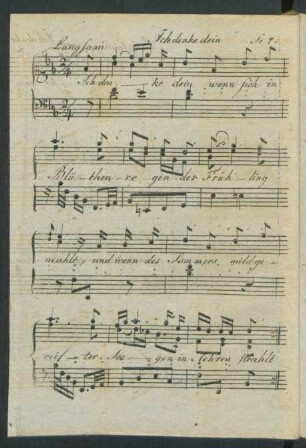 Langsam Ich denke dein No 7.
Ich den - ke dein wenn sich in
Blü - then - re - gen der Früh - ling
mahlt, und wenn des Sommers mild ge -
reif - ter See - gen in Aehren strahlt